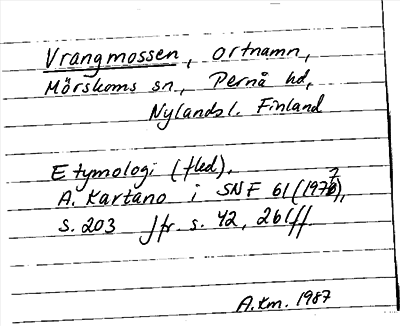 Vrangmossen, ortnamn,
Mörskoms sn., Pernå hd,
Nylandsl. Finland
Etymologi (fled).
A. Kartano i SNF 61 (1977),
s. 203 Jfr s. 42, 261 ff.
A.Km. 1987